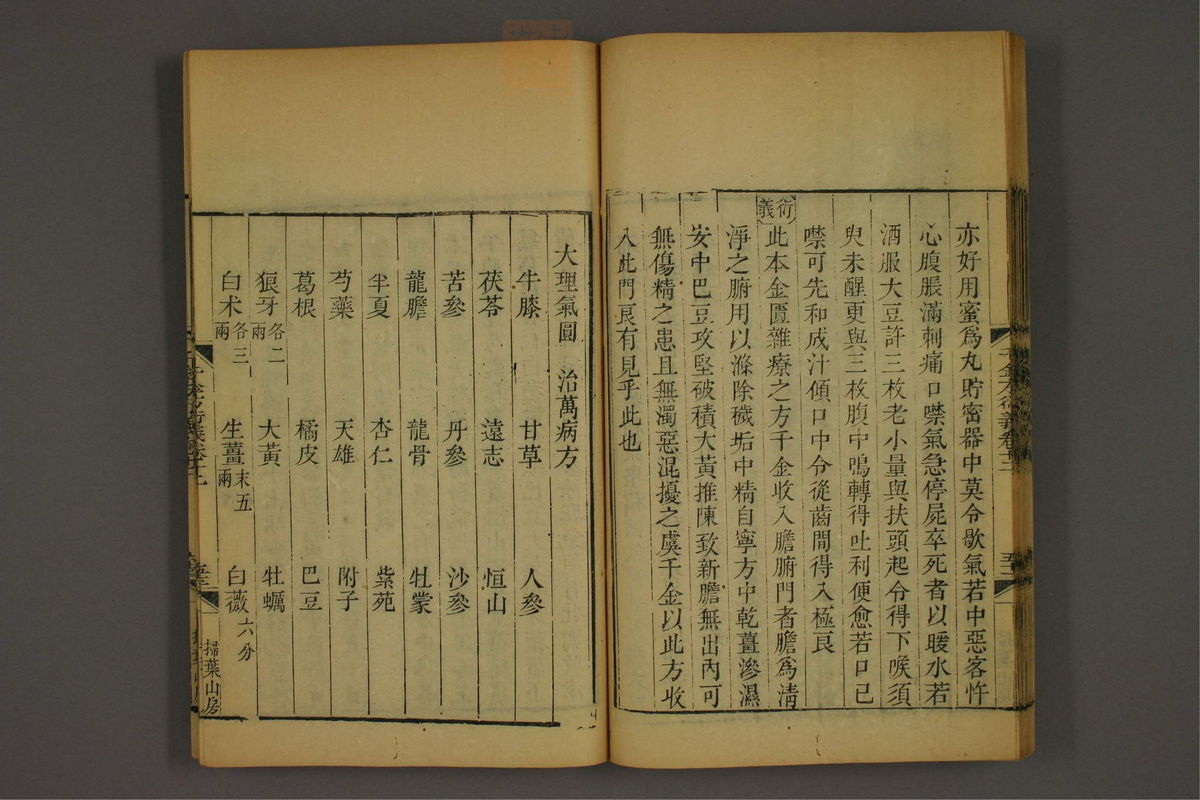 亦好用蜜爲丸貯密器中莫令歇氣若中惡客忤
心腹脹滿刺痛口噤氣急停屍卒死者以暖水若
酒服大豆許三枚老小量與扶頭起令得下喉須
臾未醒更與三枚腹中鳴轉得吐利便愈若口已
噤可先和成汁傾口中令從齒間得入極良
衍義
此本金匱雜療之方千金收入膽腑門者膽爲清
淨之腑用以滌除穢垢中精自寧方中乾薑滲濕
安中巴豆攻堅破積大黃推陳致新膽無出內可
無傷精之患且無濁惡混擾之虞千金以此方收
入此門良有見乎此也
大理氣圓 治萬病方
牛膝 甘草 人參
茯苓 遠志 恒山
苦參 丹參 沙參
龍膽 龍骨 牡蒙
半夏 杏仁 紫菀
芍藥 天雄 附子
葛根 橘皮 巴豆
狼牙各二兩 大黃 牡蠣
白术各三兩 生薑末五兩 白薇六分
掃葉山房